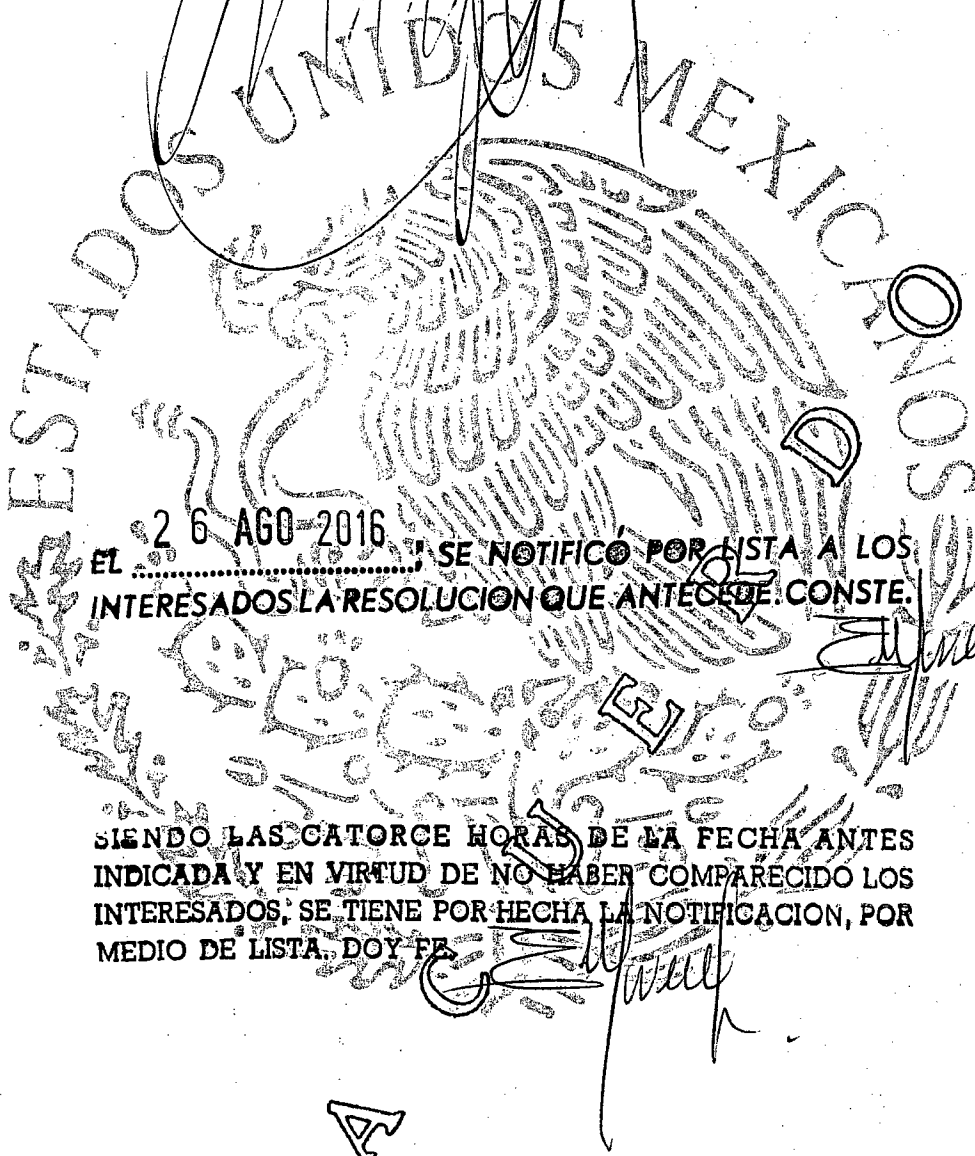 ESTADOS UNIDOS MEXICANOS
EL 26 AGO 2016, SE NOTIFICÓ POR LISTA A LOS
INTERESADOS LA RESOLUCION QUE ANTECEDE. CONSTE.
SIENDO LAS CATORCE HORAS DE LA FECHA ANTES
INDICADA Y EN VIRTUD DE NO HABER COMPARECIDO LOS
INTERESADOS, SE TIENE POR HECHA LA NOTIFICACION, POR
MEDIO DE LISTA. DOY FE.
ACUERDO